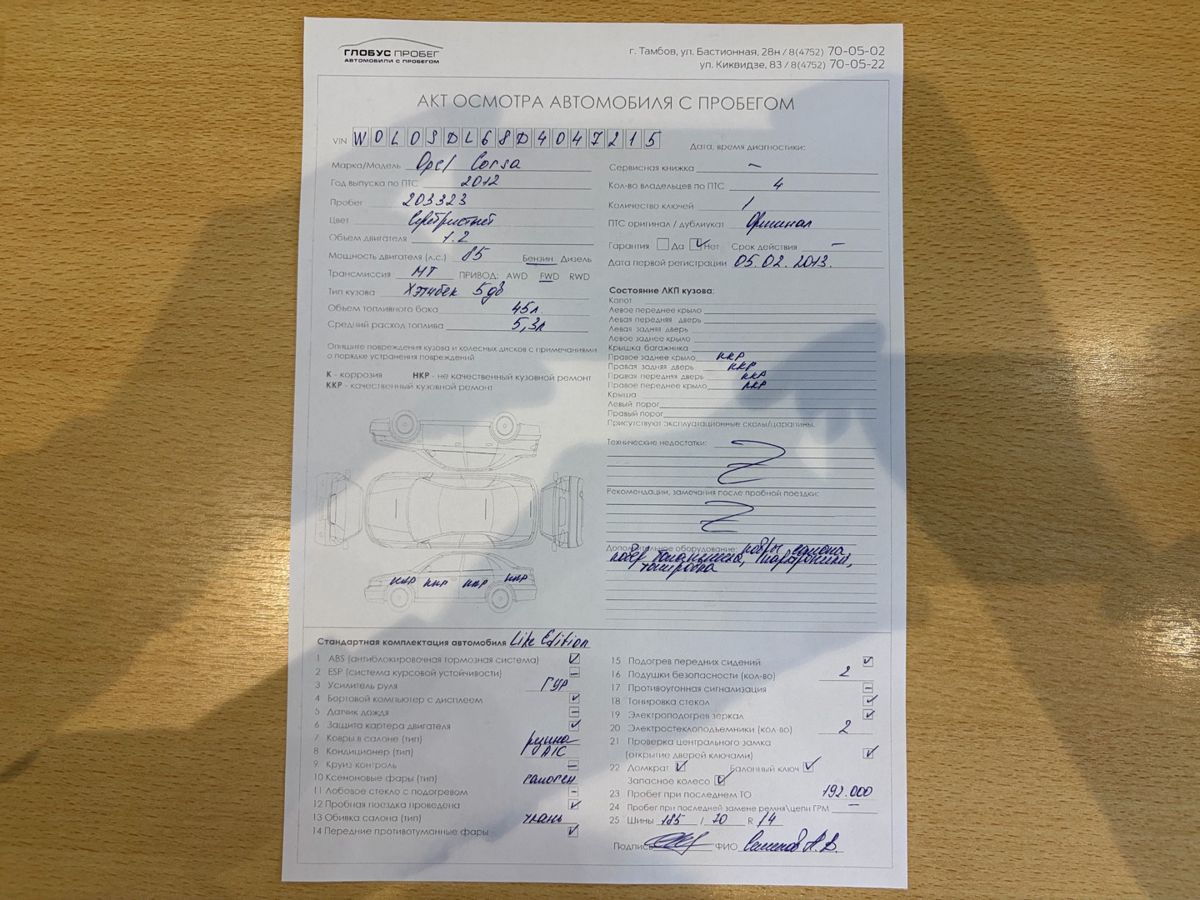 ГЛОБУС ПРОБЕГ
АВТОМОБИЛИ С ПРОБЕГОМ
г. Тамбов, ул. Бастионная, 28н / 8(4752) 70-05-02
ул. Киквидзе, 83 / 8(4752) 70-05-22
АКТ ОСМОТРА АВТОМОБИЛЯ С ПРОБЕГОМ
VIN W0L0SDL68D4047215
Марка/Модель Opel Corsa
Год выпуска по ПТС 2012
Пробег 203323
Цвет Серебристый
Объем двигателя 1.2
Мощность двигателя (л.с.) 85 Бензин Дизель
Трансмиссия МТ ПРИВОД: AWD FWD RWD
Тип кузова Хэтчбек 5дв
Объем топливного бака 45л
Средний расход топлива 5,3л
Опишите повреждения кузова и колесных дисков с примечаниями
о порядке устранения повреждений
К - коррозия НКР - не качественный кузовной ремонт
ККР - качественный кузовной ремонт
ККР ККР ККР ККР
Дата, время диагностики:
Сервисная книжка –
Кол-во владельцев по ПТС 4
Количество ключей 1
ПТС оригинал / дубликат Оригинал
Гарантия Да Нет Срок действия –
Дата первой регистрации 05.02.2013.
Состояние ЛКП кузова:
Капот
Левое переднее крыло
Левая передняя дверь
Левая задняя дверь
Левое заднее крыло
Крышка багажника
Правое заднее крыло ККР
Правая задняя дверь ККР
Правая передняя дверь ККР
Правое переднее крыло ККР
Крыша
Левый порог
Правый порог
Присутствуют эксплуатационные сколы/царапины.
Технические недостатки:
Рекомендации, замечания после пробной поездки:
Дополнительное оборудование: ковры салона
тонировка
Стандартная комплектация автомобиля Life Edition
1 ABS (антиблокировочная тормозная система)
2 ESP (система курсовой устойчивости) –
3 Усилитель руля ГУР
4 Бортовой компьютер с дисплеем
5 Датчик дождя –
6 Защита картера двигателя
7 Ковры в салоне (тип) резина
8 Кондиционер (тип) A/C
9 Круиз контроль –
10 Ксеноновые фары (тип) галоген
11 Лобовое стекло с подогревом –
12 Пробная поездка проведена
13 Обивка салона (тип) ткань
14 Передние противотуманные фары
15 Подогрев передних сидений
16 Подушки безопасности (кол-во) 2
17 Противоугонная сигнализация –
18 Тонировка стекол
19 Электроподогрев зеркал
20 Электростеклоподъемники (кол во) 2
21 Проверка центрального замка
(открытие дверей ключами)
22 Домкрат Балонный ключ
Запасное колесо
23 Пробег при последнем ТО 192.000
24 Пробег при последней замене ремня\цепи ГРМ –
25 Шины 185 / 70 R 14
Подпись ФИО Семенов А.В.